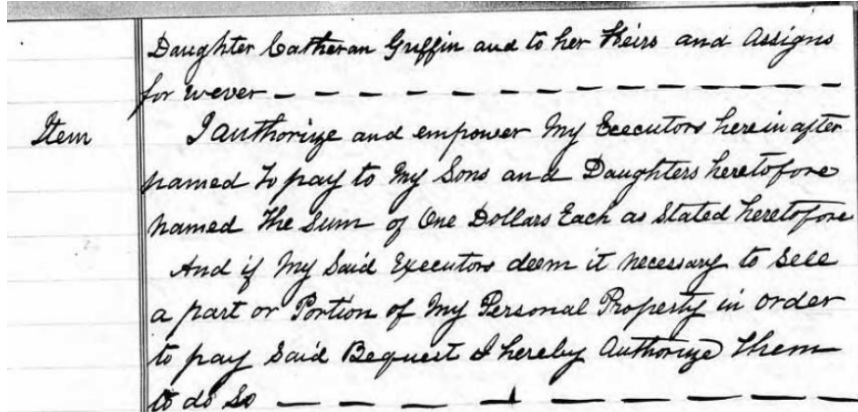 Daughter Catheran Griffin and to her Heirs and Assigns
for wever — — — — — — — — — — — — — —
Item I authorize and empower My Executors herein after
named to pay to My Sons and Daughters heretofore
named the Sum of One Dollars Each as Stated heretofore
And if My Said Executors deem it necessary to Sell
a part or Portion of My Personal Property in order
to pay Said Bequest I hereby Authorize them
to do So — — — — — — — — — —